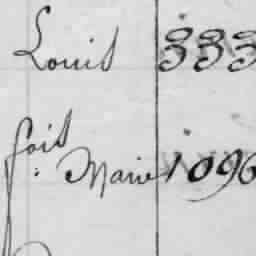 Louis 333
fois
: Marie 1096